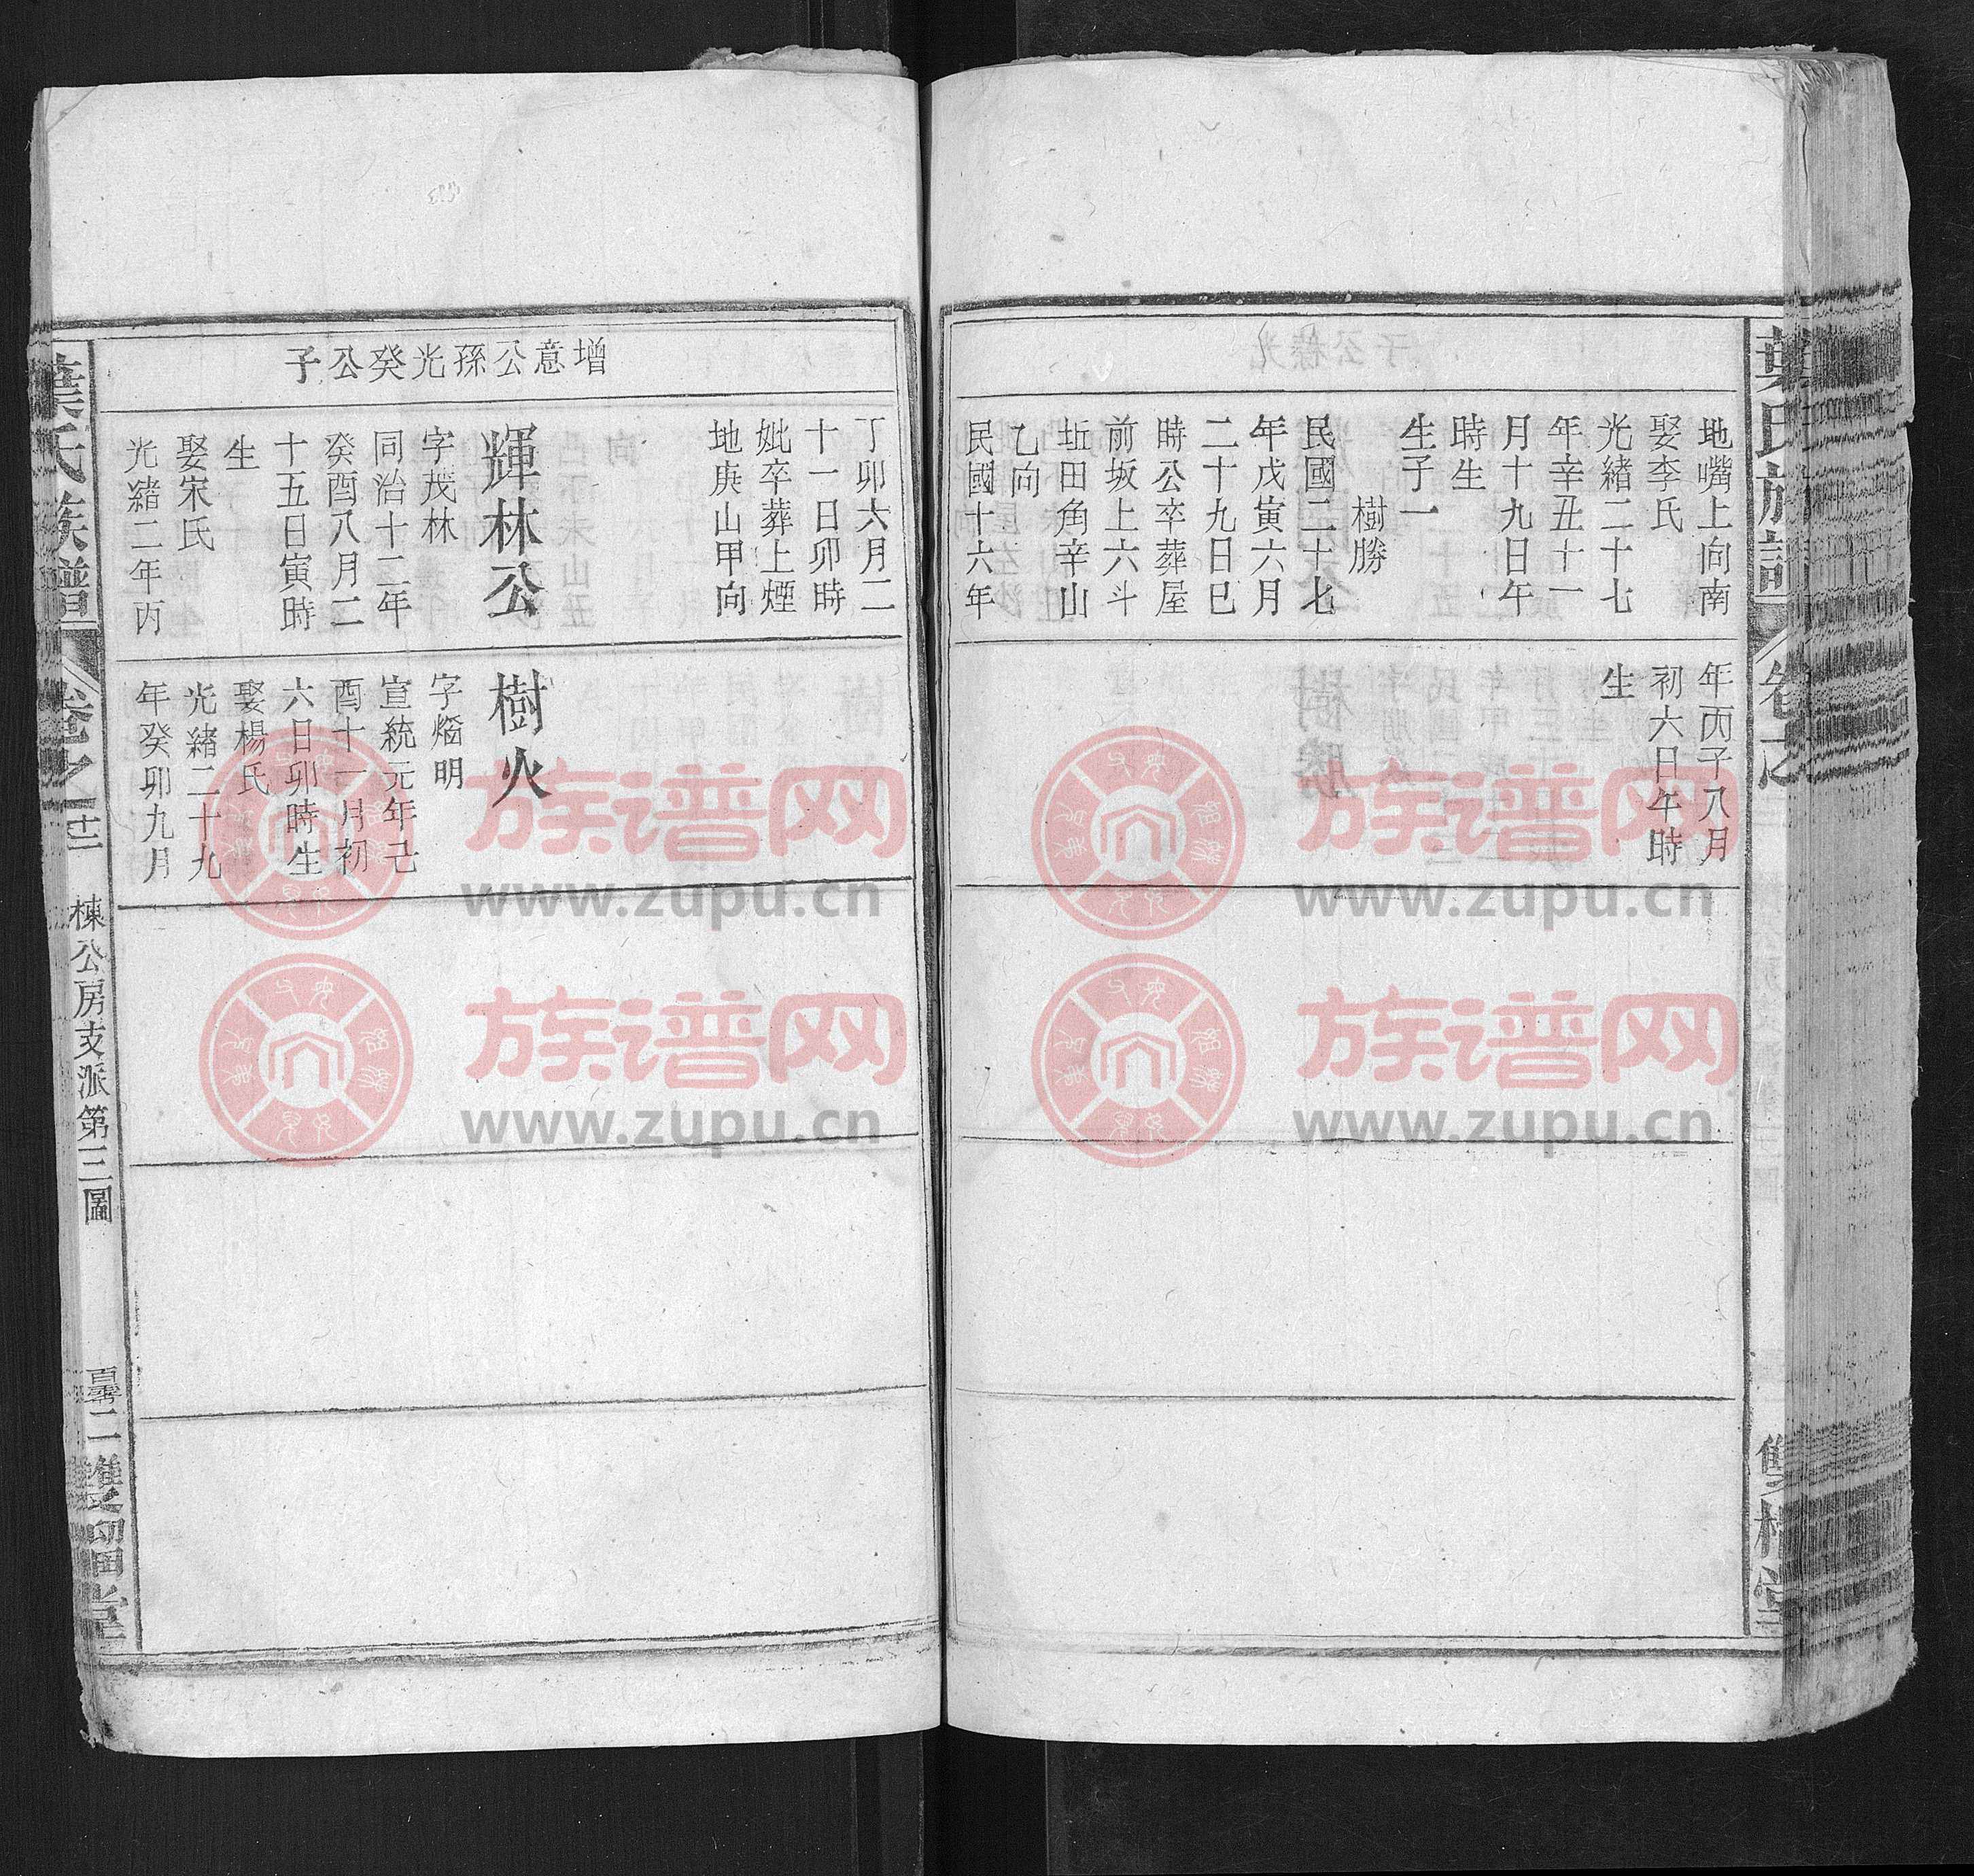 地嘴上向南
娶李氏
光緒二十七
年辛丑十一
月十九日午
時生
生子一
樹勝
民國二十七
年戊寅六月
二十九日巳
時公卒葬屋
前坂上六斗
坵田角辛山
乙向
民國十六年
年丙子八月
初六日午時
生
丁卯六月二
十一日卯時
妣卒葬上煙
地庚山甲向
增意公孫光癸公子
輝林公
字茂林
同治十二年
癸酉八月二
十五日寅時
生
娶宋氏
光緒二年丙
樹火
字煏明
宣統元年己
酉十一月初
六日卯時生
娶楊氏
光緒二十九
年癸卯九月
葉氏族譜
卷之
棟公房支派第三圖
堂
族谱网
www.zupu.cn
族谱网
www.zupu.cn
族谱网
www.zupu.cn
族谱网
www.zupu.cn